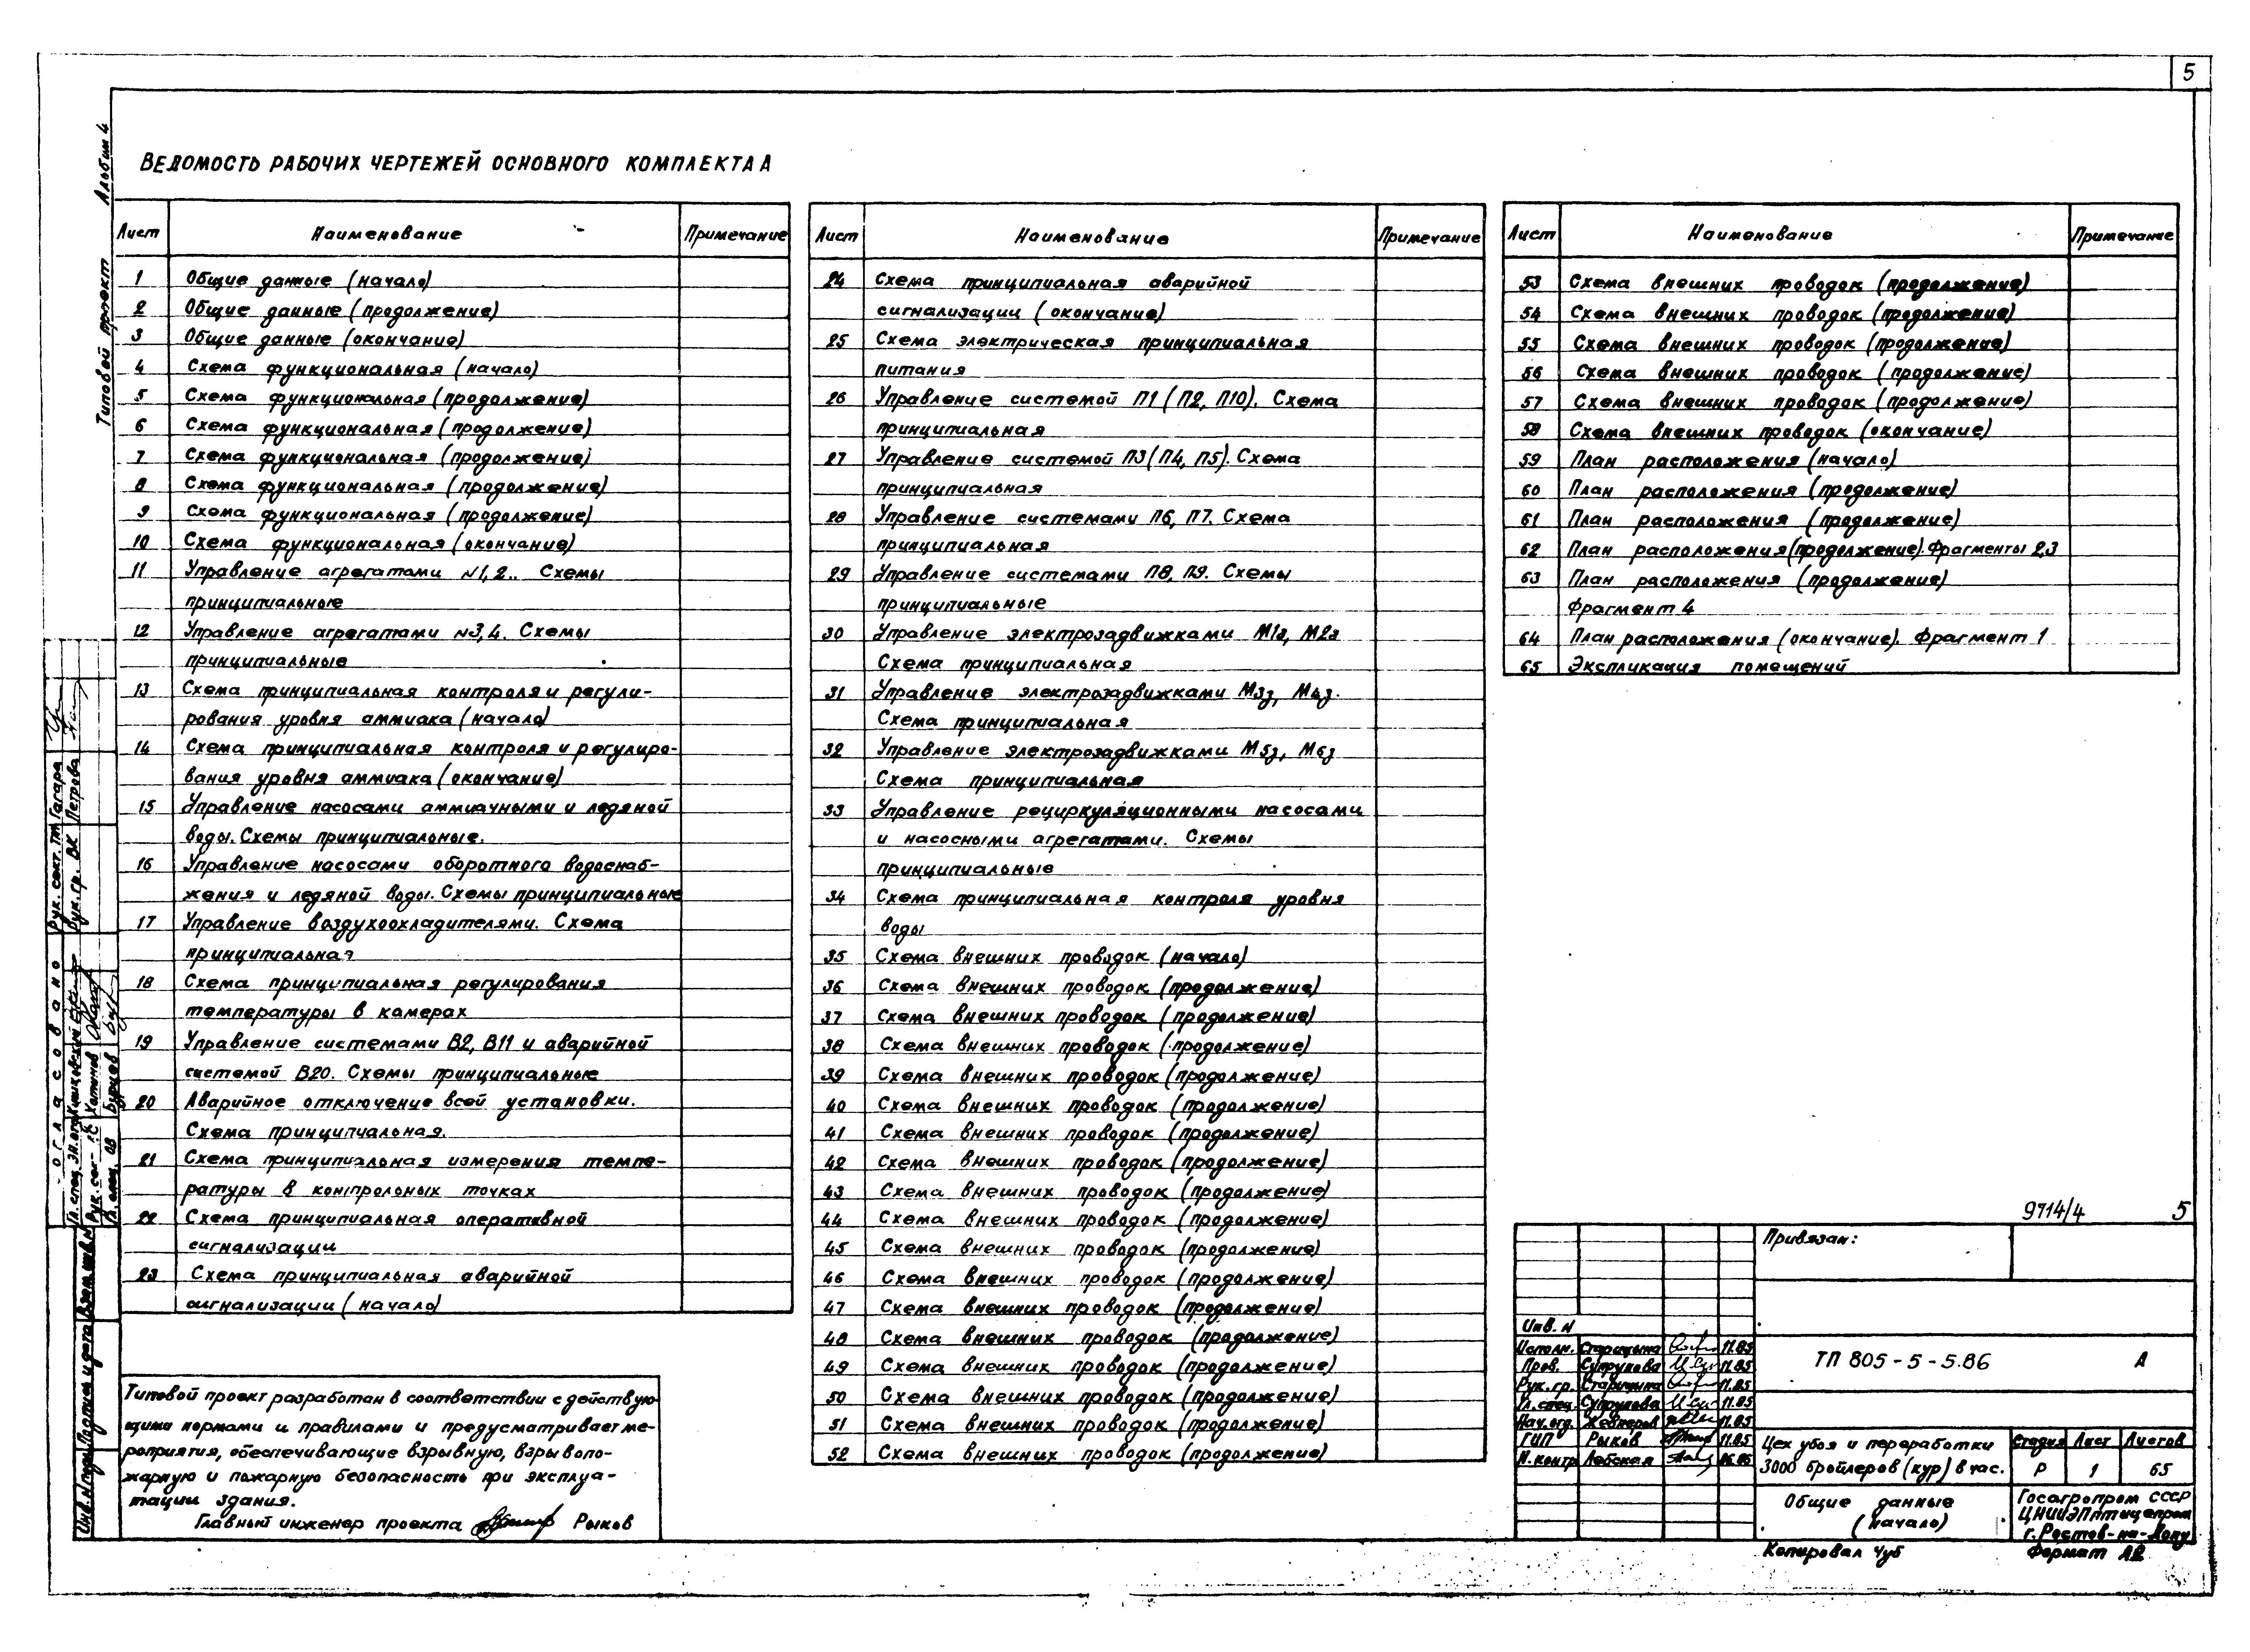 5
Типовой проект Альбом 4
ВЕДОМОСТЬ РАБОЧИХ ЧЕРТЕЖЕЙ ОСНОВНОГО КОМПЛЕКТА А
Лист Наименование Примечание
1 Общие данные (начало)
2 Общие данные (продолжение)
3 Общие данные (окончание)
4 Схема функциональная (начало)
5 Схема функциональная (продолжение)
6 Схема функциональная (продолжение)
7 Схема функциональная (продолжение)
8 Схема функциональная (продолжение)
9 Схема функциональная (продолжение)
10 Схема функциональная (окончание)
11 Управление агрегатами N1,2.. Схемы
принципиальные
12 Управление агрегатами N3,4. Схемы
принципиальные
13 Схема принципиальная контроля и регули-
рования уровня аммиака (начало)
14 Схема принципиальная контроля и регулиро-
вания уровня аммиака (окончание)
15 Управление насосами аммиачными и ледяной
воды. Схемы принципиальные.
16 Управление насосами оборотного водоснаб-
жения и ледяной воды. Схемы принципиальные
17 Управление воздухоохладителями. Схема
принципиальная
18 Схема принципиальная регулирования
температуры в камерах
19 Управление системами В2, В11 и аварийной
системой В20. Схемы принципиальные
20 Аварийное отключение всей установки.
Схема принципиальная.
21 Схема принципиальная измерения темпе-
ратуры в контрольных точках
22 Схема принципиальная оперативной
сигнализации
23 Схема принципиальная аварийной
сигнализации (начало)
Лист Наименование Примечание
24 Схема принципиальная аварийной
сигнализации (окончание)
25 Схема электрическая принципиальная
питания
26 Управление системой П1 (П2, П10). Схема
принципиальная
27 Управление системой П3 (П4, П5). Схема
принципиальная
28 Управление системами П6, П7. Схема
принципиальная
29 Управление системами П8, П9. Схемы
принципиальные
30 Управление электрозадвижками М1з, М2з
Схема принципиальная
31 Управление электрозадвижками М3з, М4з.
Схема принципиальная
32 Управление электрозадвижками М5з, М6з
Схема принципиальная
33 Управление рециркуляционными насосами
и насосными агрегатами. Схемы
принципиальные
34 Схема принципиальная контроля уровня
воды
35 Схема внешних проводок (начало)
36 Схема внешних проводок (продолжение)
37 Схема внешних проводок (продолжение)
38 Схема внешних проводок (продолжение)
39 Схема внешних проводок (продолжение)
40 Схема внешних проводок (продолжение)
41 Схема внешних проводок (продолжение)
42 Схема внешних проводок (продолжение)
43 Схема внешних проводок (продолжение)
44 Схема внешних проводок (продолжение)
45 Схема внешних проводок (продолжение)
46 Схема внешних проводок (продолжение)
47 Схема внешних проводок (продолжение)
48 Схема внешних проводок (продолжение)
49 Схема внешних проводок (продолжение)
50 Схема внешних проводок (продолжение)
51 Схема внешних проводок (продолжение)
52 Схема внешних проводок (продолжение)
Лист Наименование Примечание
53 Схема внешних проводок (продолжение)
54 Схема внешних проводок (продолжение)
55 Схема внешних проводок (продолжение)
56 Схема внешних проводок (продолжение)
57 Схема внешних проводок (продолжение)
58 Схема внешних проводок (окончание)
59 План расположения (начало)
60 План расположения (продолжение)
61 План расположения (продолжение)
62 План расположения (продолжение). Фрагменты 2,3
63 План расположения (продолжение)
Фрагмент 4
64 План расположения (окончание). Фрагмент 1
65 Экспликация помещений
Типовой проект разработан в соответствии с действую-
щими нормами и правилами и предусматривает ме-
роприятия, обеспечивающие взрывную, взрывопо-
жарную и пожарную безопасность при эксплуа-
тации здания.
Главный инженер проекта Рыков
Рук. сект. ТМ Гагара
Рук. гр. ВК Петрова
огласовано
Гл. спец. ЭЛ.
Рук. сек-
Гл. спец. ОВ Бурцев
Инв. N подл. Подпись и дата Взам. инв. N
9714/4 5
Привязан:
Инв. N
Исполн. Старицына 11.85
Пров. Супрунова 11.85
Рук. гр. Старицына 11.85
Гл. спец. Супрунова 11.85
Нач. отд. 11.85
ГИП Рыков 11.85
Н. контр.
ТП 805-5-5.86 А
Цех убоя и переработки
3000 бройлеров (кур) в час.
Стадия Лист Листов
Р 1 65
Общие данные
(начало)
Госагропром СССР
ЦНИИЭПптицепром
г. Ростов-на-Дону
Копировал Чуб Формат А2